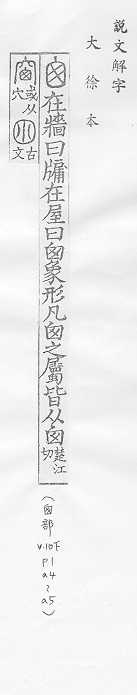 說文解字
大徐本
囪在牆曰牖在屋曰囪象形凡囪之屬皆从囪楚江切
窗或从穴
囱古文
(囪部
v.10下
p1
a4
~
a5
)